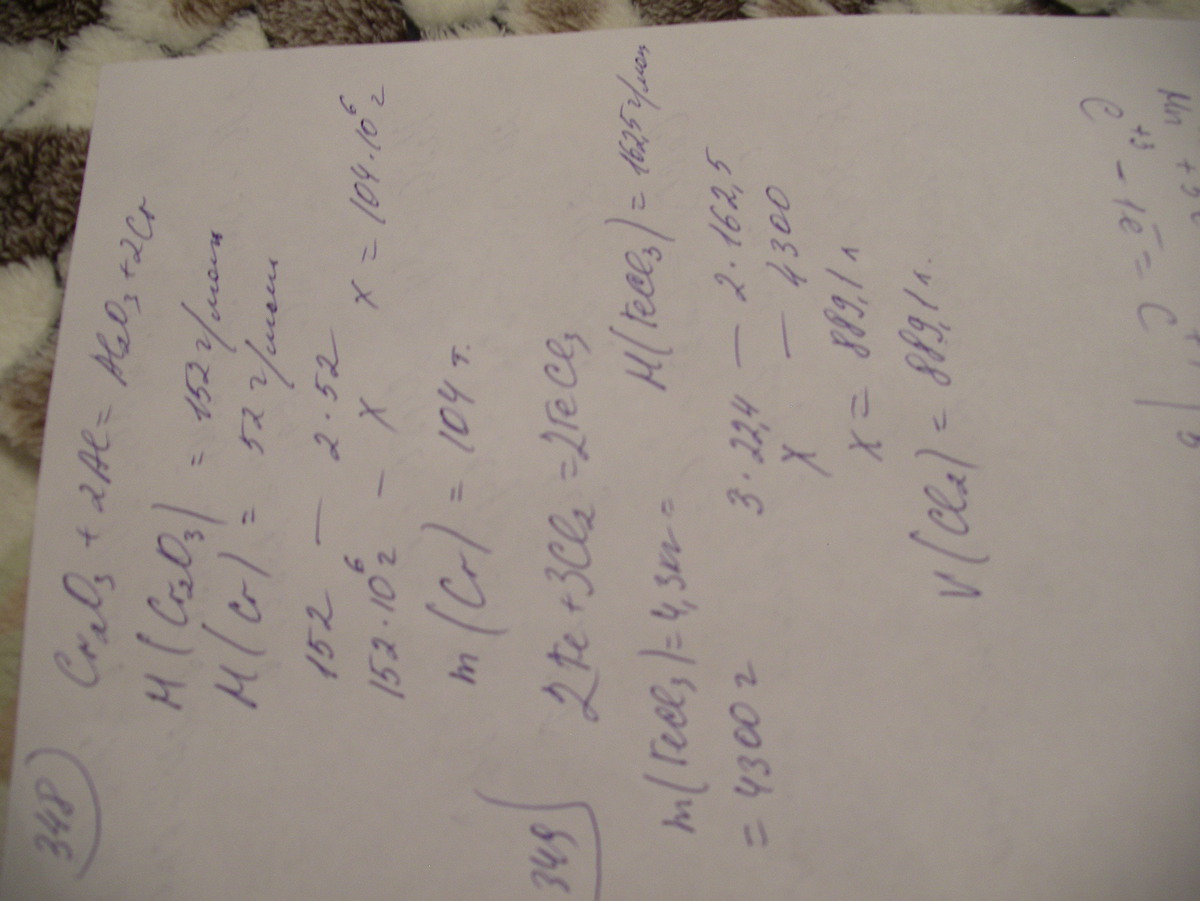 348) Cr₂O₃ + 2Al = Al₂O₃ + 2Cr
M(Cr₂O₃) = 152 г/моль
M(Cr) = 52 г/моль
152 — 2·52
152·10⁶ г – x x = 104·10⁶ г
m(Cr) = 104 т.
349) 2Fe + 3Cl₂ = 2FeCl₃
m(FeCl₃) = 4,3кг = M(FeCl₃) = 162,5 г/моль
= 4300 г 3·22,4 — 2·162,5
x — 4300
x = 889,1 л
V(Cl₂) = 889,1 л.